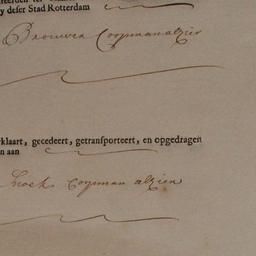 y deser Stad Rotterdam
Brouwer Coopman alhier
klaart, gecedeert, getransporteert, en opgedragen
n aan
hoek Coopman alhier